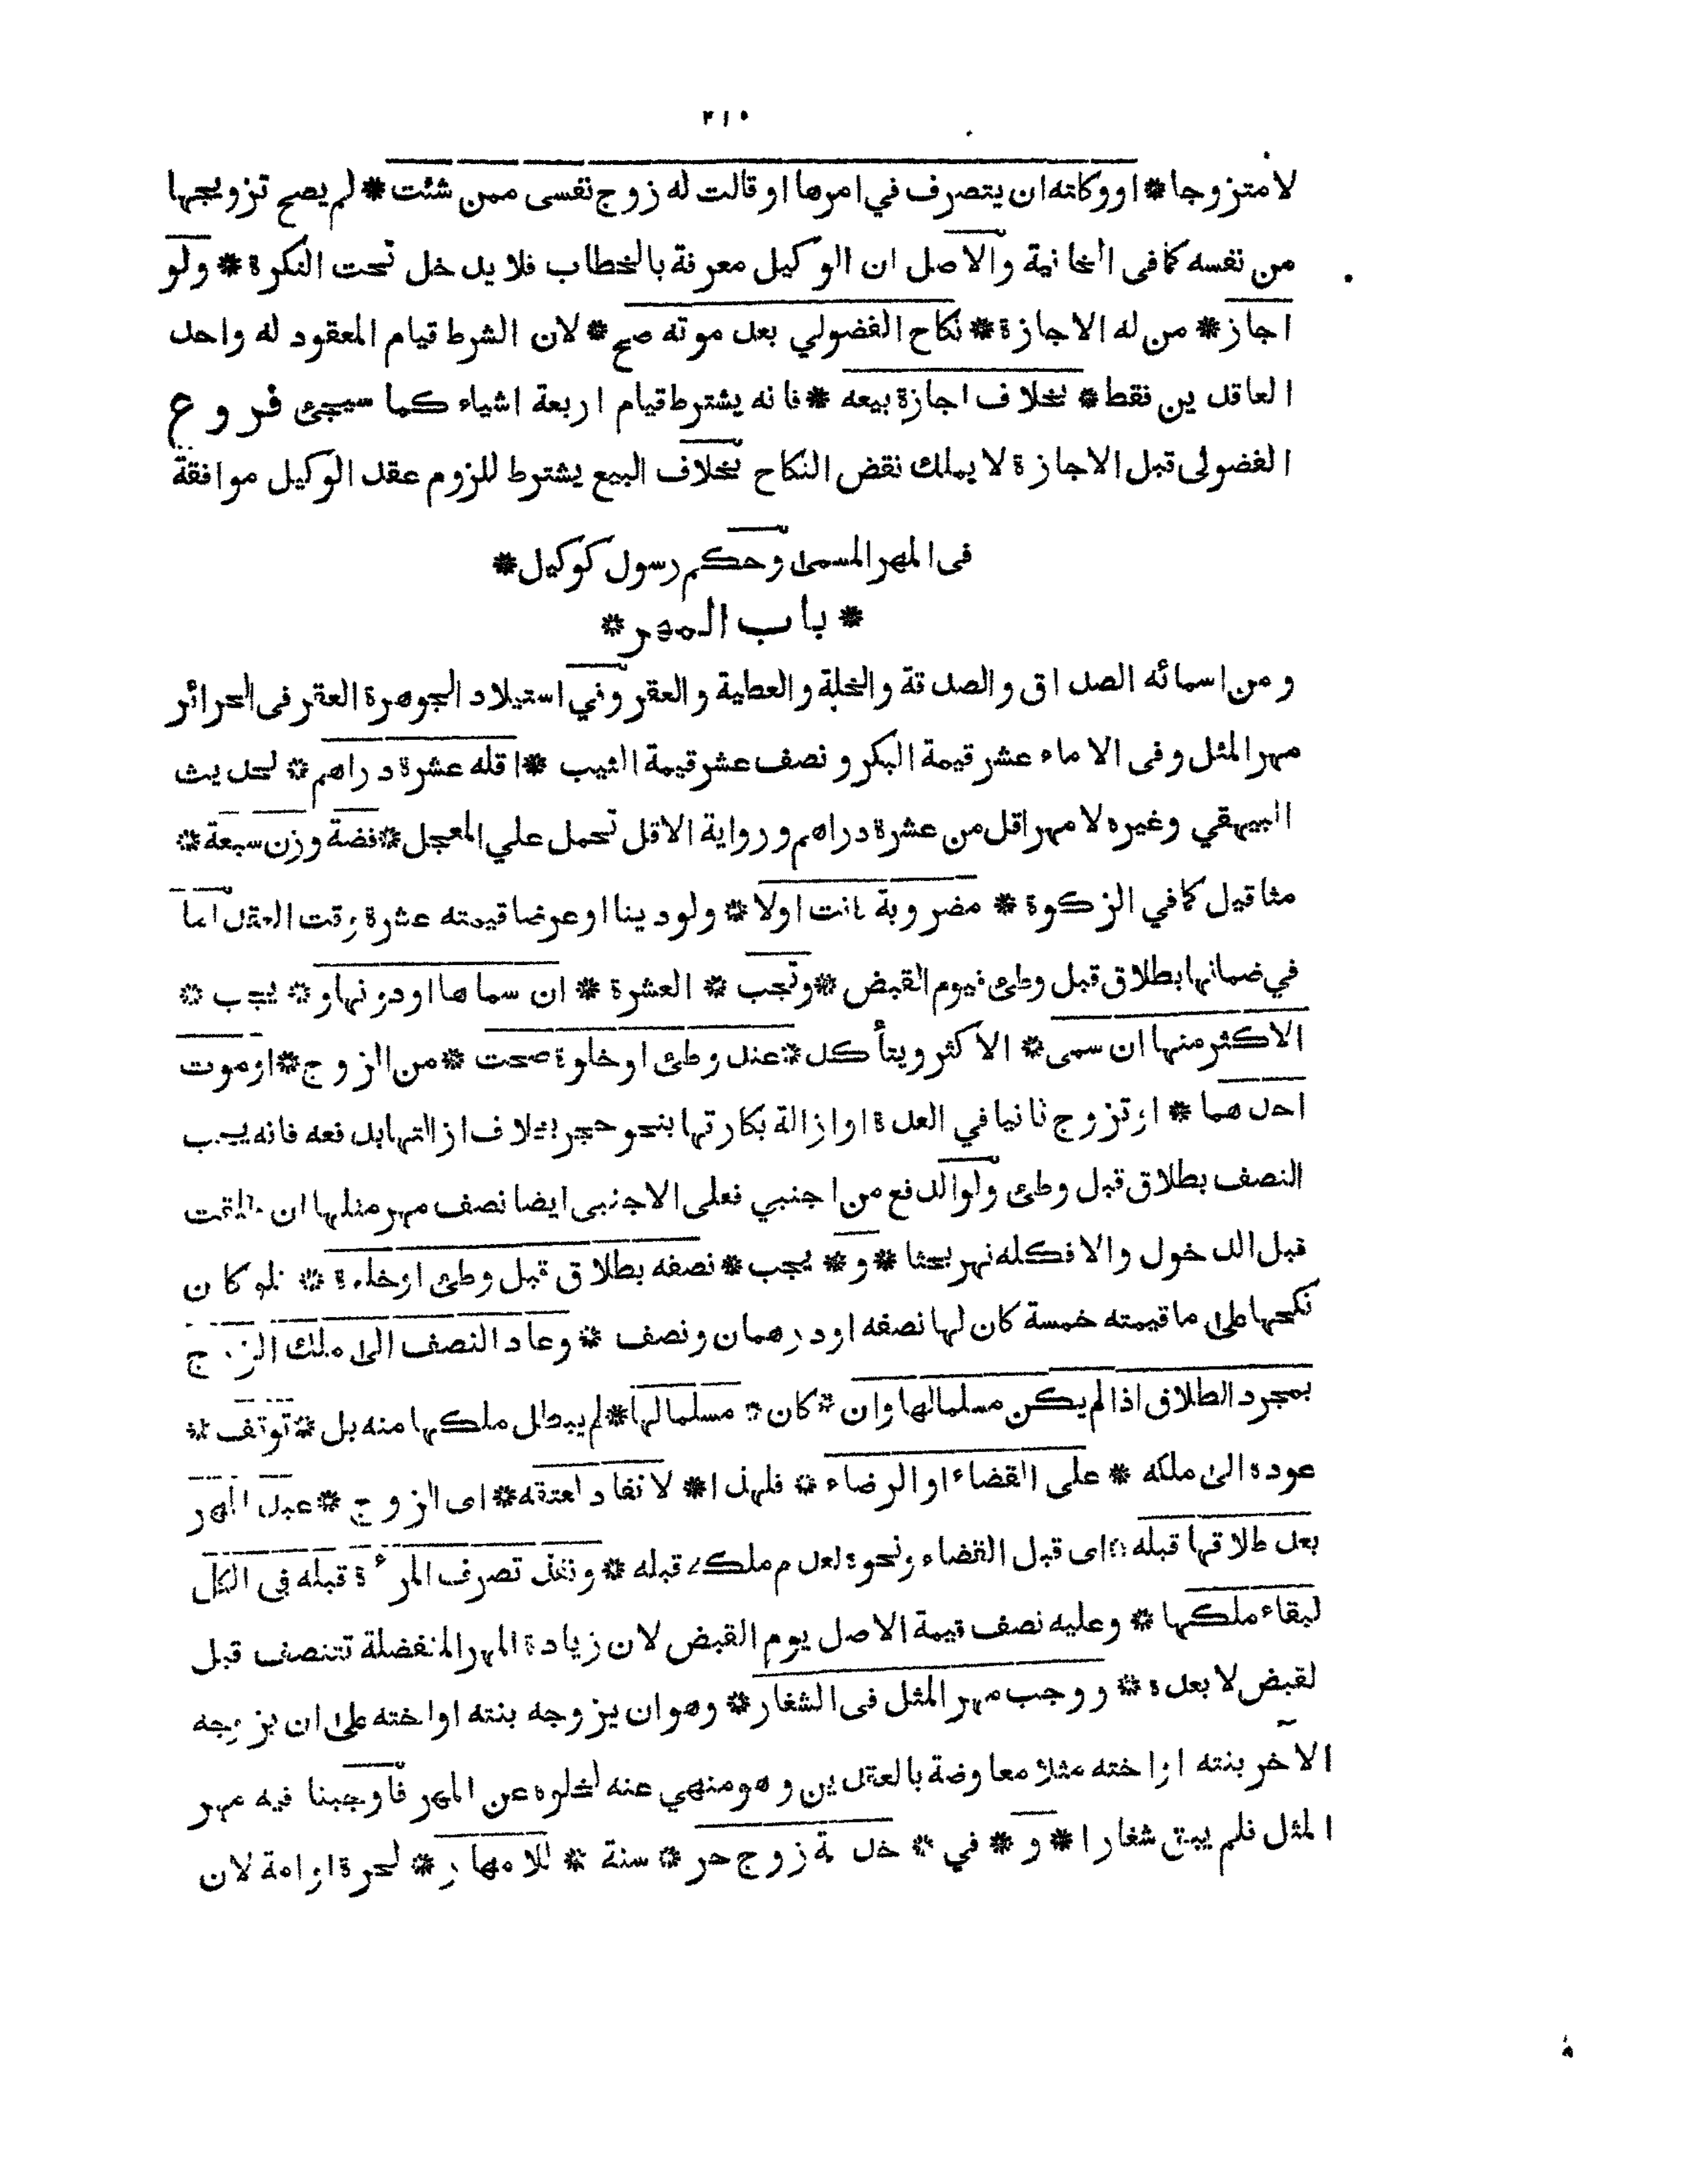 ٢١٥
لا متزوجا * او وكلته ان يتصرف في امرها او قالت له زوج نفسى ممن شئت * لم يصح تزويجها
من نفسه كما فى الخانية والاصل ان الوكيل معرفة بالخطاب فلا يدخل تحت النكرة * ولو
اجاز * من له الاجازة * نكاح الفضولي بعد موته صح * لان الشرط قيام المعقود له واحد
العاقدين فقط * بخلاف اجازة بيعه * فانه يشترط قيام اربعة اشياء كما سيجئ فروع
الفضولى قبل الاجازة لا يملك نقض النكاح بخلاف البيع يشترط للزوم عقد الوكيل موافقة
فى المهر المسمى وحكم رسول كوكيل *
* باب المهر *
ومن اسمائه الصداق والصدقة والنحلة والعطية والعقر وفي استيلاد الجوهرة العقر فى الحرائر
مهر المثل وفى الاماء عشر قيمة البكر ونصف عشر قيمة الثيب * اقله عشرة دراهم * لحديث
البيهقي وغيره لا مهر اقل من عشرة دراهم ورواية الاقل تحمل علي المعجل * فضة وزن سبعة *
مثاقيل كما في الزكوة * مضروبة كانت اولا * ولو دينا او عرضا قيمته عشرة وقت العقد اما
في ضمانها بطلاق قبل وطئ فيوم القبض * وتجب * العشرة * ان سماها او دونها و * يجب *
الاكثر منها ان سمى * الاكثر ويتأكد * عند وطئ او خلوة صحت * من الزوج * او موت
احدهما * او تزوج ثانيا في العدة او ازالة بكارتها بنحو حجر بخلاف ازالتها بدفعه فانه يجب
النصف بطلاق قبل وطئ ولو الدفع من اجنبي فعلى الاجنبى ايضا نصف مهر مثلها ان طلقت
قبل الدخول والا فكله نهر بحثا * و * يجب * نصفه بطلاق قبل وطئ او خلوة * فلو كان
نكحها على ما قيمته خمسة كان لها نصفه او درهمان ونصف * وعاد النصف الى ملك الزوج
بمجرد الطلاق اذا لم يكن مسلما لها وان * كان * مسلما لها * لم يبطل ملكها منه بل * توقف *
عوده الى ملكه * على القضاء او الرضاء * فلهذا * لا نفاد لعتقه * اى الزوج * عبد المهر
بعد طلاقها قبله * اى قبل القضاء ونحوه لعدم ملكه قبله * ونفذ تصرف المرءة قبله فى الكل
لبقاء ملكها * وعليه نصف قيمة الاصل يوم القبض لان زيادة المهر المنفضلة تتنصف قبل
لقبض لا بعده * ووجب مهر المثل فى الشغار * وهو ان يزوجه بنته او اخته على ان يزوجه
الاخر بنته او اخته مثلا معاوضة بالعقدين وهو منهي عنه لخلوه عن المهر فاوجبنا فيه مهر
المثل فلم يبق شغارا * و * في * خدمة زوج حر * سنة * للامهار * لحرة او امة لان